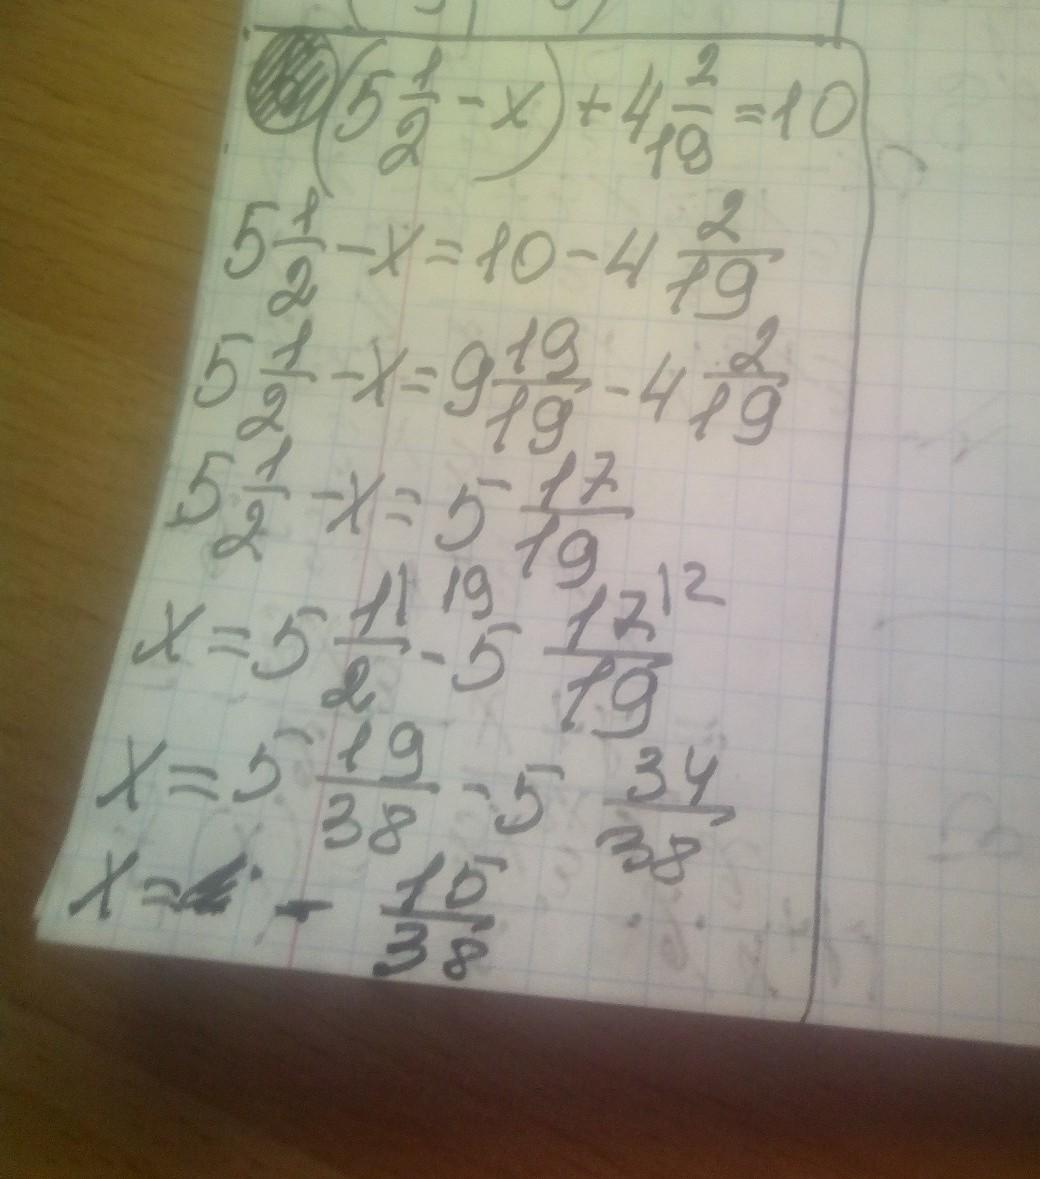 (5 1/2 - x) + 4 2/19 = 10
5 1/2 - x = 10 - 4 2/19
5 1/2 - x = 9 19/19 - 4 2/19
5 1/2 - x = 5 17/19
x = 5 1/2 |19 - 5 17/19 |2
x = 5 19/38 - 5 34/38
x = - 15/38